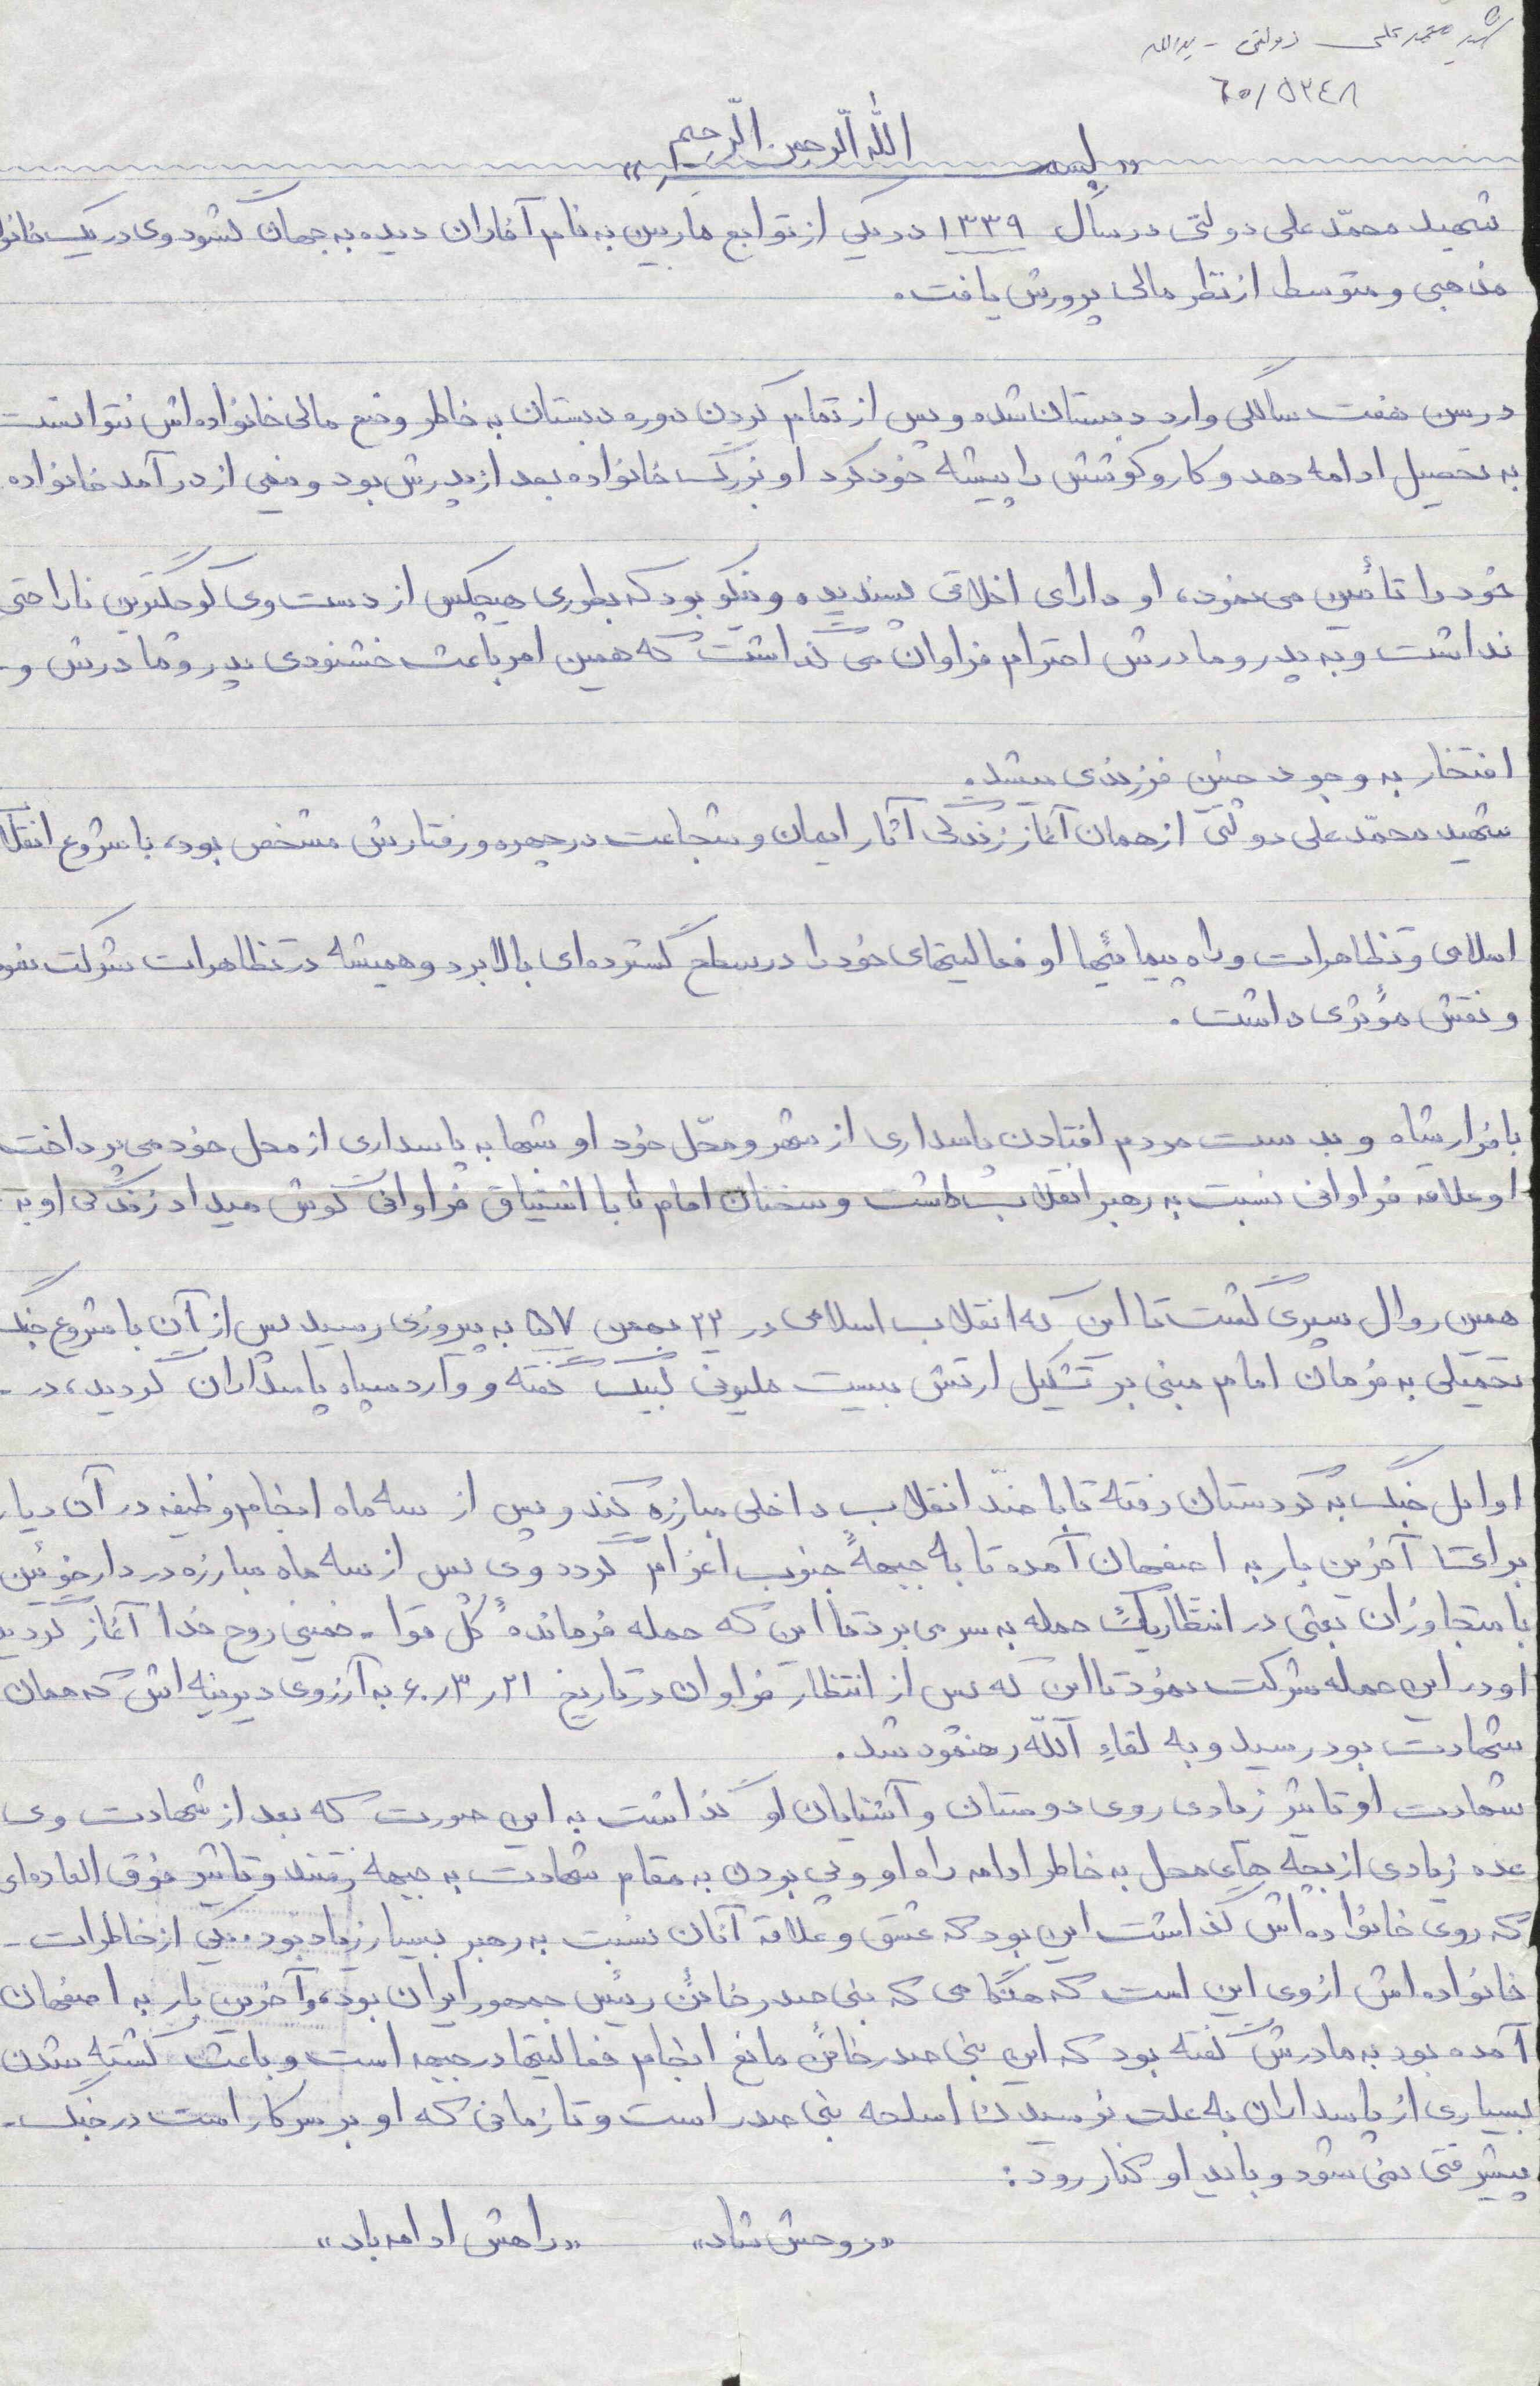 شهید محمدعلی دولتی - یدالله
۶۰/۵۳۴۸
«بسم الله الرّحمن الرّحیم»
شهید محمّد علی دولتی در سال ۱۳۳۹ در یکی از توابع ماربین به نام آفاران دیده به جهان گشود وی در یک خانواده
مذهبی و متوسط از نظر مالی پرورش یافت.
در سن هفت سالگی وارد دبستان شده و پس از تمام کردن دوره دبستان به خاطر وضع مالی خانواده اش نتوانست
به تحصیل ادامه دهد و کار و کوشش را پیشه خود کرد او بزرگ خانواده بعد از پدرش بود و نیمی از درآمد خانواده
خود را تأمین می نمود، او دارای اخلاقی پسندیده و نیکو بود که بطوری هیچکس از دست وی کوچکترین ناراحتی
نداشت و به پدر و مادرش احترام فراوان می گذاشت که همین امر باعث خشنودی پدر و مادرش و-
افتخار به وجود چنین فرزندی میشد.
شهید محمّد علی دولتی از همان آغاز زندگی آثار ایمان و شجاعت در چهره و رفتارش مشخص بود، با شروع انقلاب
اسلامی و تظاهرات و راه پیمائیها او فعالیتهای خود را در سطح گسترده ای بالا برد و همیشه در تظاهرات شرکت نمود
و نقش مؤثری داشت.
با فرار شاه و بدست مردم افتادن پاسداری از شهر و محّل خود او شبها به پاسداری از محل خود می پرداخت
او علاقه فراوانی نسبت به رهبر انقلاب داشت و سخنان امام را با اشتیاق فراوانی گوش میداد زندگی او به
همین روال سپری گشت تا این که انقلاب اسلامی در ۲۲ بهمن ۵۷ به پیروزی رسید پس از آن با شروع جنگ
تحمیلی به فرمان امام مبنی بر تشکیل ارتش بیست ملیونی لبیک گفته و وارد سپاه پاسداران گردید، در-
اوایل جنگ به کردستان رفته تا با ضدّ انقلاب داخلی مبارزه کند و پس از سه ماه انجام وظیفه در آن دیار
برای آخرین بار به اصفهان آمده تا به جبههٔ جنوب اعزام گردد وی پس از سه ماه مبارزه در دارخوئین
با متجاوزان بعثی در انتظار یک حمله به سر می برد تا این که حمله فرماندهٔ کل قوا - خمینی روح خدا آغاز گردید
او در این حمله شرکت نمود تا این که پس از انتظار فراوان در تاریخ ۶۰ر۳ر۲۱ به آرزوی دیرینه اش که همان
شهادت بود رسید و به لقاءِ اللّه رهنمود شد.
شهادت او تاثیر زیادی روی دوستان و آشنایان او گذاشت به این صورت که بعد از شهادت وی
عده زیادی از بچه های محل به خاطر ادامه راه او و پی بردن به مقام شهادت به جبهه رفتند و تاثیر فوق العاده ای
که روی خانواده اش گذاشت این بود که عشق و علاقه آنان نسبت به رهبر بسیار زیاد بود، یکی از خاطرات -
خانواده اش از وی این است که هنگامی که بنی صدر خائن رئیس جمهور ایران بود، و آخرین بار به اصفهان
آمده بود به مادرش گفته بود که این بنی صدر خائن مانع انجام فعالیتها در جبهه است و باعث کشته شدن
بسیاری از پاسداران به علت نرسیدن اسلحه بنی صدر است و تا زمانی که او بر سر کار است در جنگ-
پیشرفتی نمی شود و باید او کنار رود:
«روحش شاد» «راهش ادامه باد»